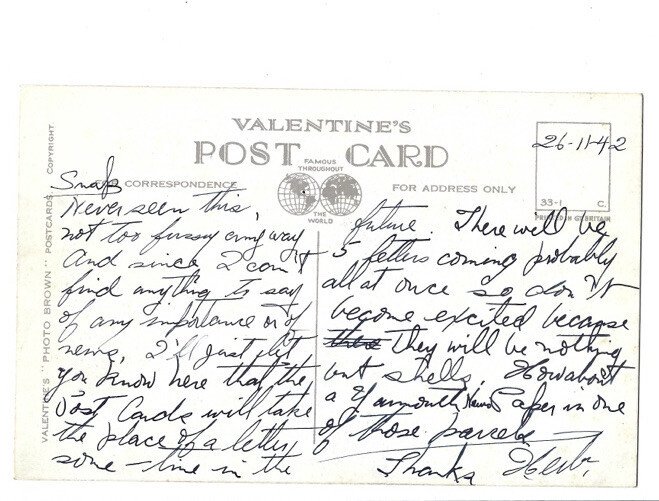 VALENTINE'S
POST CARD
FAMOUS THROUGHOUT
THE WORLD
CORRESPONDENCE
FOR ADDRESS ONLY
26-11-42
33-1 C.
PRINTED IN GT BRITAIN
VALENTINE'S "PHOTO BROWN" POSTCARDS COPYRIGHT
Snaps
Never seen this,
not too fussy any way
And since I can't
find anything to say
of any importance or of
news, I'll just let
you know here that the
Post Cards will take
the place of a letter
some-time in the
future. There will be
5 letters coming probably
all at once so don't
become excited because
there They will be nothing
but shells. How about
a Yarmouth News Paper in one
of those parcels
Thanks Herb.